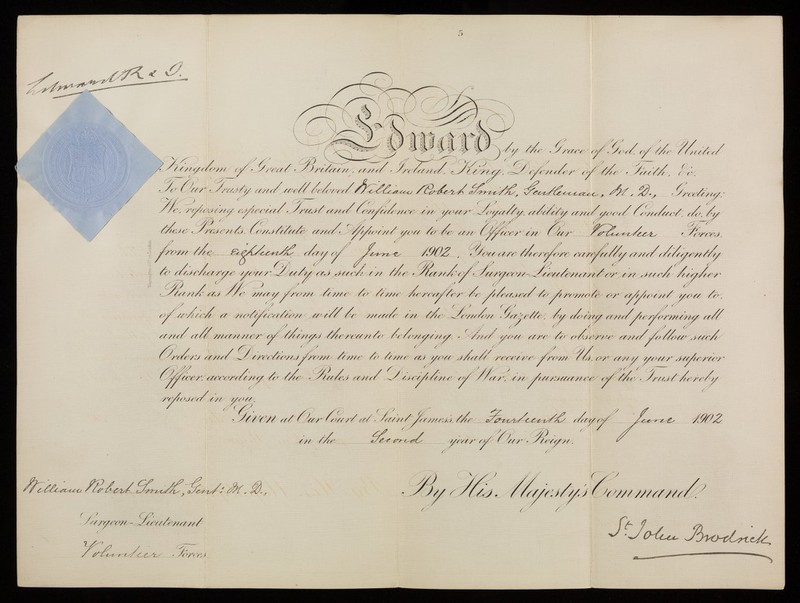 5
Edward R & I.
Edward, by the Grace of God, of the United
Kingdom of Great Britain, and Ireland, King, Defender of the Faith, &c.
To Our Trusty and well beloved William Robert Smith, Gentleman, M. D., Greeting:
We, reposing especial Trust and Confidence in your Loyalty, ability and good Conduct, do, by
these Presents, Constitute and Appoint you to be an Officer in Our Volunteer Forces,
from the eighteenth day of June 1902. You are therefore carefully and diligently
to discharge your Duty as such in the Rank of Surgeon-Lieutenant or in such higher
Rank as We may from time to time hereafter be pleased to promote or appoint you to,
of which a notification will be made in the London Gazette, by doing and performing all
and all manner of things thereunto belonging. And you are to observe and follow such
Orders and Directions from time to time as you shall receive from Us, or any your superior
Officer, according to the Rules and Discipline of War, in pursuance of the Trust hereby
reposed in you.
Given at Our Court at Saint James's, the Fourteenth day of June 1902
in the Second year of Our Reign.
By His Majesty's Command,
William Robert Smith, Gent: M. D.,
Surgeon-Lieutenant
Volunteer Forces
St. John Brodrick